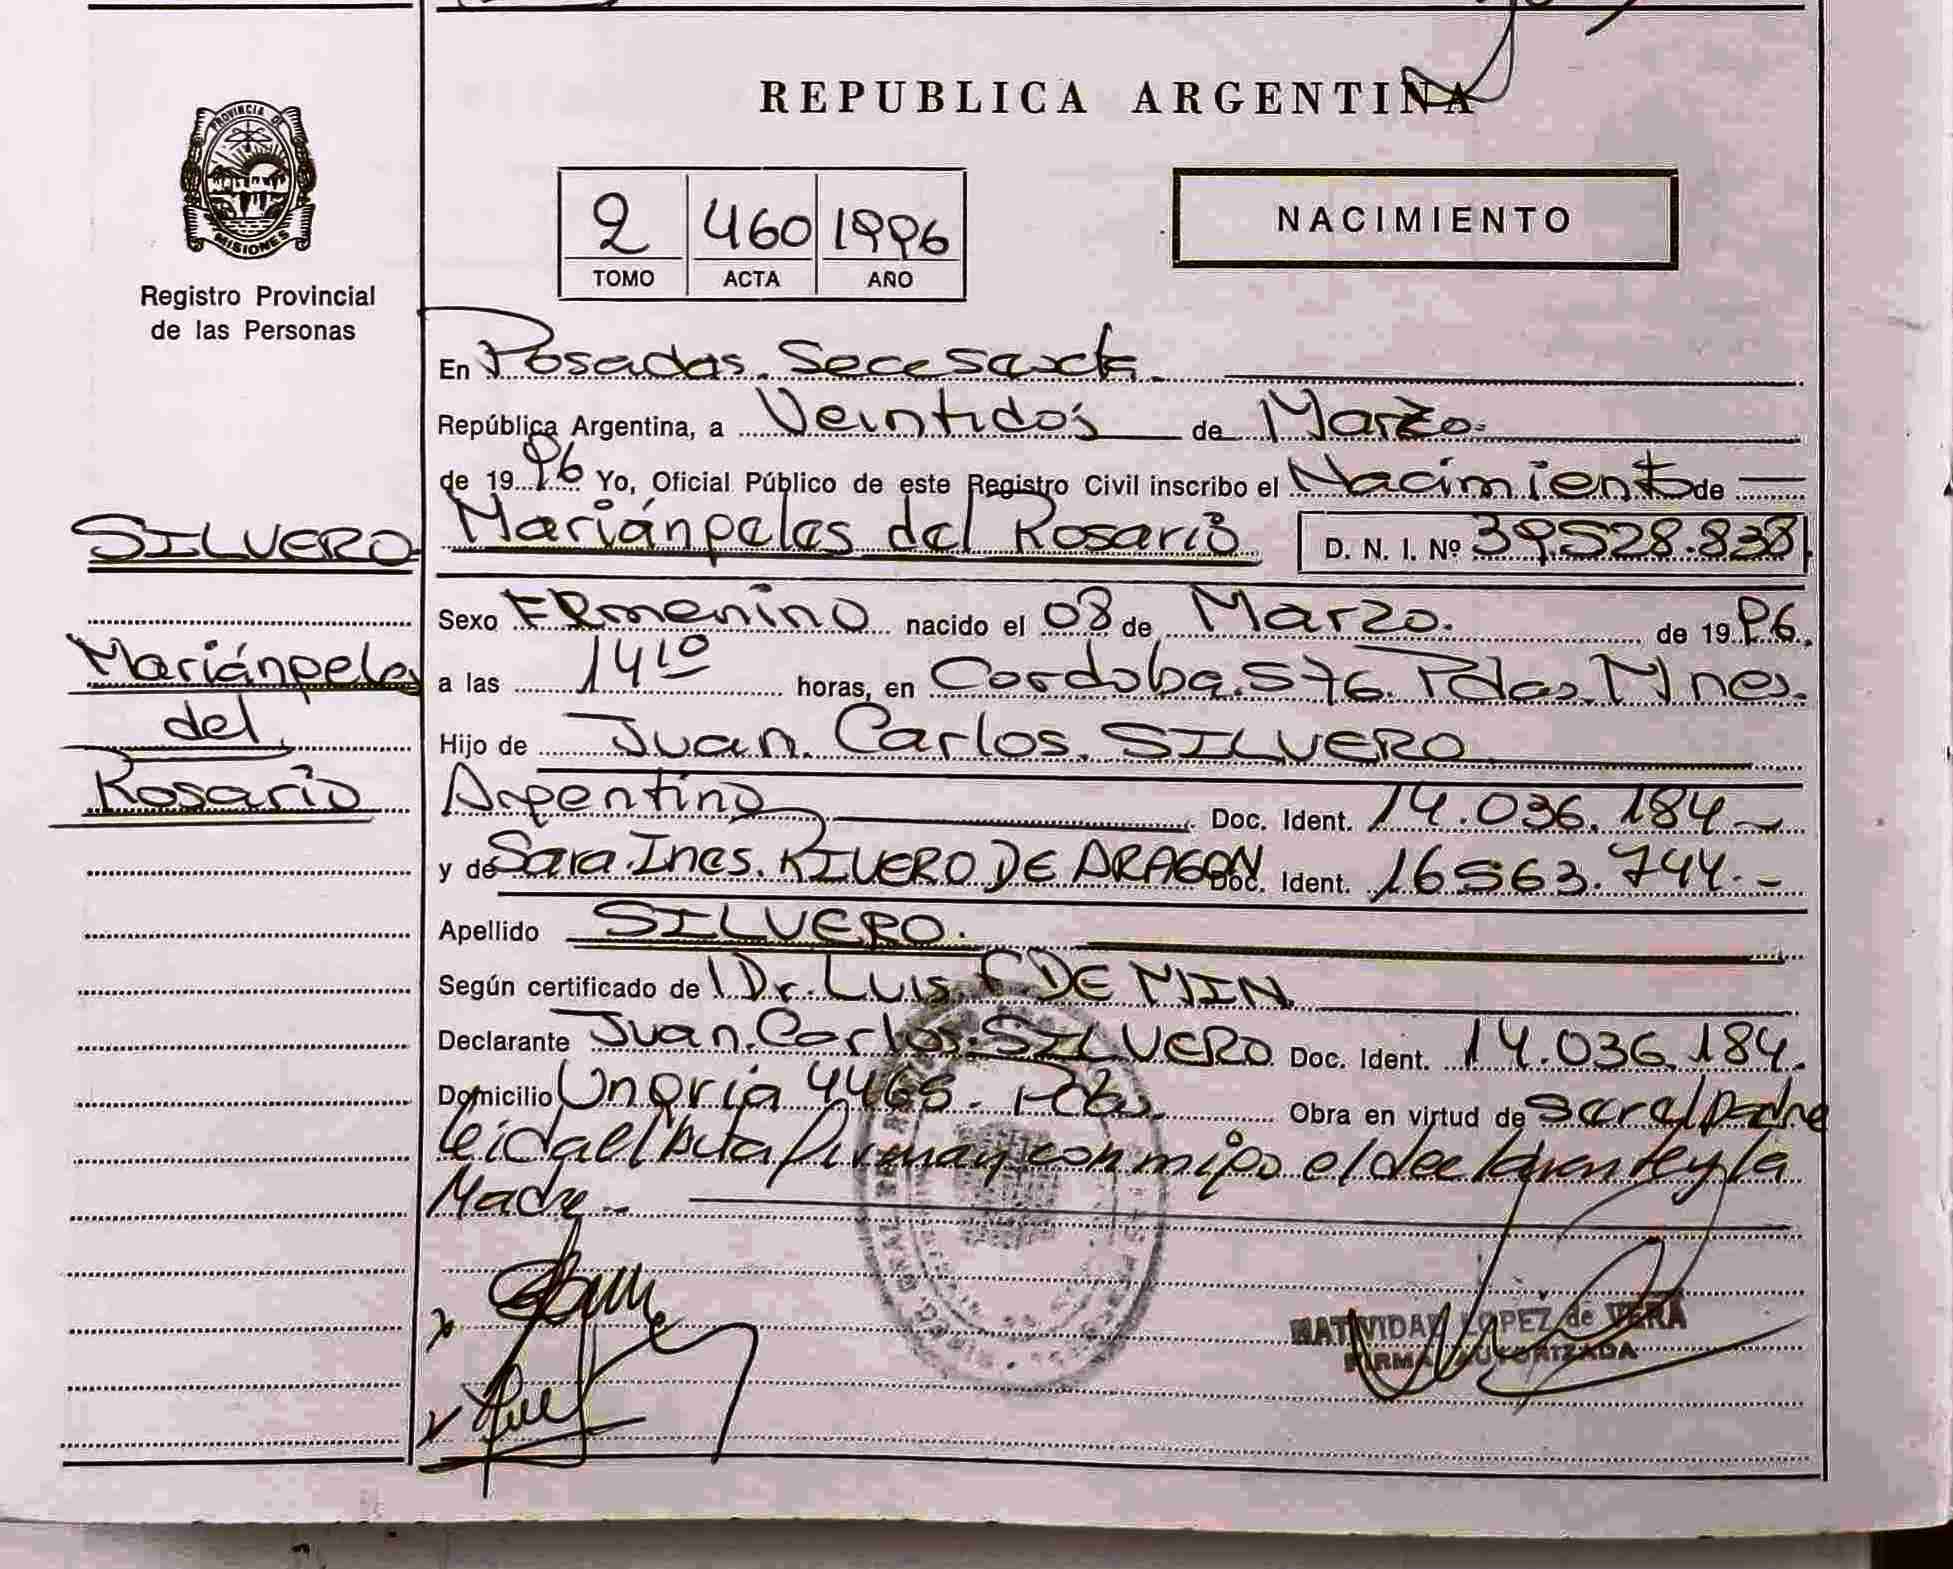 REPUBLICA ARGENTINA
PROVINCIA DE
MISIONES
Registro Provincial
de las Personas
2 460 1996
TOMO ACTA AÑO
NACIMIENTO
En Posadas.
República Argentina, a Veintidós de Marzo.
de 1996 Yo, Oficial Público de este Registro Civil inscribo el Nacimiento de
SILVERO
Mariángeles del Rosario D. N. I. Nº 39.528.838
Mariángeles
del
Rosario
Sexo Femenino nacido el 08 de Marzo. de 1996.
a las 14 10 horas, en Cordoba. 576. Pdas. Mnes.
Hijo de Juan. Carlos. SILVERO
Argentino Doc. Ident. 14.036.184-
y de Sara. Ines. RIVERO DE ARAGON Doc. Ident. 16.563.744.-
Apellido SILVERO.
Según certificado de Dr. Luis. F. DE MIN
Declarante Juan. Carlos. SILVERO Doc. Ident. 14.036.184.
Domicilio Ungria 4468. Pdas. Obra en virtud de ser el padre
leida el Acta firman conmigo el declarante y la
Madre.-
NATIVIDAD LOPEZ de VERA
FIRMA AUTORIZADA